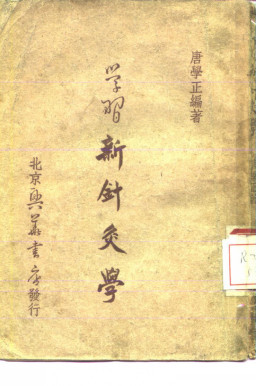 唐學正編著
学習新針灸學
北京興華書店發行